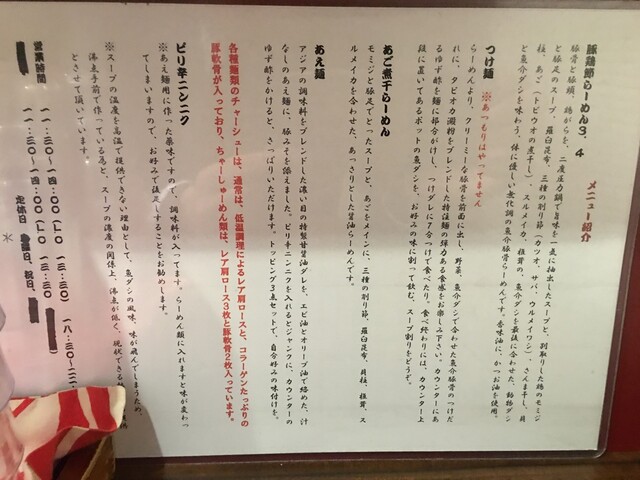 メニュー紹介
豚鶏節らーめん3.4
豚骨と豚頭、鶏がらを、二度圧力鍋で旨味を一気に抽出したスープと、別取りした鶏のモミジ
と豚足のスープ、羅臼昆布、三種の削り節(カツオ、サバ、ウルメイワシ)、さんま干し、貝
柱、あご(トビウオの煮干し)、スルメイカ、椎茸の、魚介ダシを最後に合わせた、動物ダシ
と魚介豚骨を味わう、体に優しい無化調の魚介豚骨らーめんです。香味油に、かつお油を使用。
つけ麺 ※あつもりはやってません
らーめんより、クリーミーな豚骨を前面に出し、野菜、魚介ダシで合わせた魚介豚骨のつけだ
れに、タピオカ澱粉をブレンドした特注麺の弾力ある食感をお楽しみ下さい。カウンターにあ
るゆず酢を麺に部分がけし、つけダレに7分つけで食べたり。食べ終わりには、カウンター上
段に置いてあるポットの魚ダシを、お好みの味に割って飲む、スープ割りをどうぞ。
あご煮干らーめん
モミジと豚足でとったスープと、あごをメインに、三種の削り節、羅臼昆布、貝柱、椎茸、ス
ルメイカを合わせた、あっさりとした醤油らーめんです。
あえ麺
アジアの調味料をブレンドした濃い目の特製甘醤油ダレを、エビ油とオリーブ油で絡めた、汁
なしのあえ麺に、豚みそを添えました。ピリ辛ニンニクを入れるとジャンクに、カウンターの
ゆず酢をかけると、さっぱりいただけます。トッピング3点セットで、自分好みの味付けを。
各種麺類のチャーシューは、通常は、低温調理によるレア肩ロースと、コラーゲンたっぷりの
豚軟骨が入っており、ちゃーしゅーめん類は、レア肩ロース3枚と豚軟骨2枚入っています。
ピリ辛ニンニク
※あえ麺用に作った薬味ですので、調味料が入ってます。らーめん類に入れますと味が変わっ
てしまいますので、お好みで後足しすることをお勧めします。
※スープの温度を高温で提供できない理由として、魚ダシの風味、味が飛んでしまうため、
沸点手前で作っている為と、スープの濃度の関係上、沸点が低く、現状できる
とさせて頂いています。
営業時間
一一:三〇~一四:〇〇(LO 一三:三〇) 一八:三〇~二二
一一:三〇~一四:〇〇(LO
定休日 祝日、